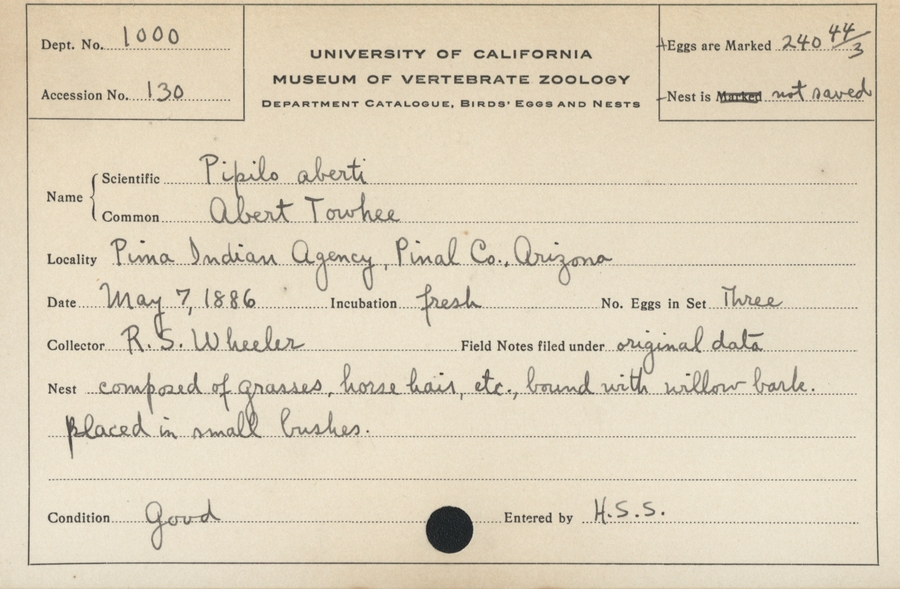 Dept. No. 1000
Accession No. 130
UNIVERSITY OF CALIFORNIA
MUSEUM OF VERTEBRATE ZOOLOGY
DEPARTMENT CATALOGUE, BIRDS' EGGS AND NESTS
Eggs are Marked 240 44/3
Nest is Marked not saved
Name
Scientific Pipilo aberti
Common Abert Towhee
Locality Pima Indian Agency, Pinal Co., Arizona
Date May 7, 1886 Incubation fresh No. Eggs in Set Three
Collector R. S. Wheeler Field Notes filed under original data
Nest composed of grasses, horse hair, etc., bound with willow bark.
placed in small bushes.
Condition Good Entered by H.S.S.